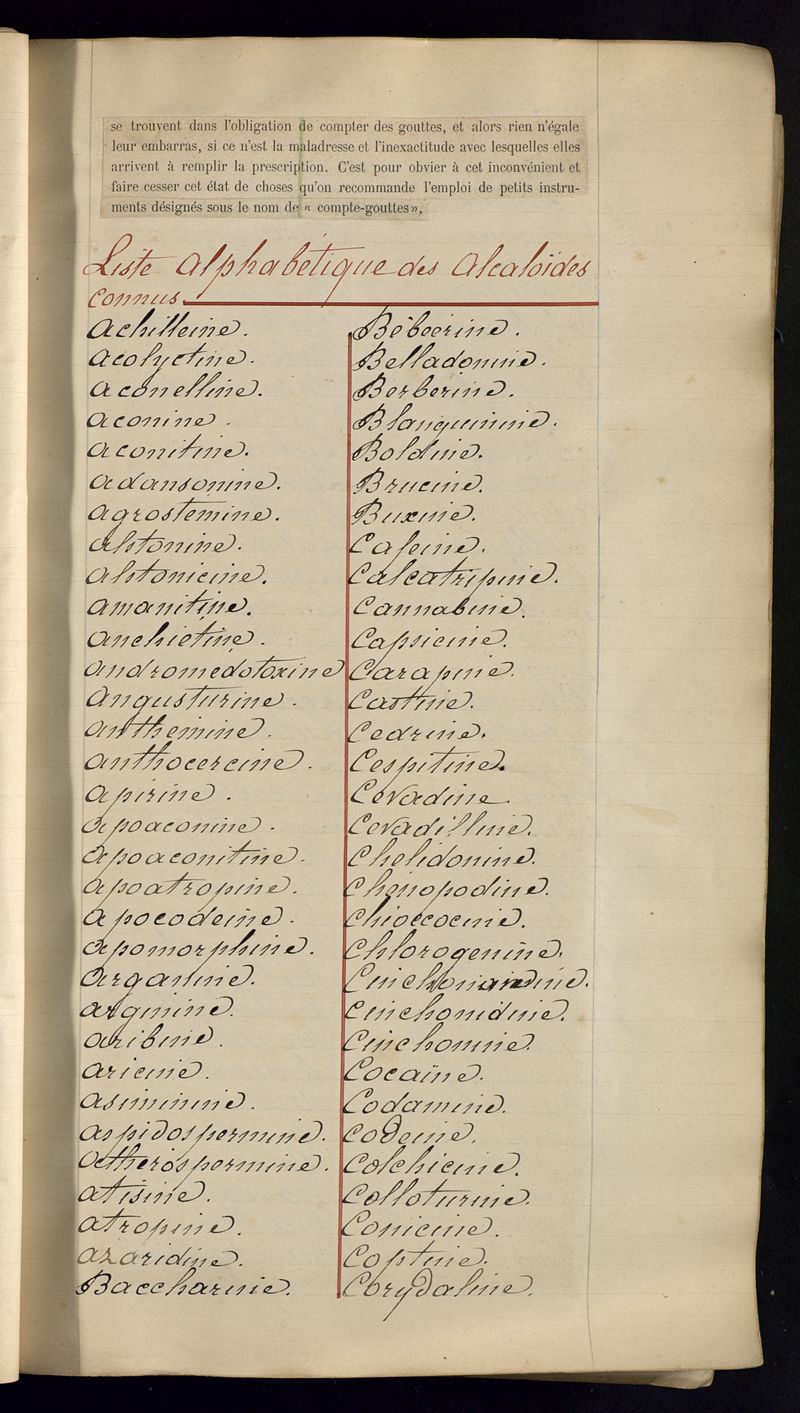 se trouvent dans l'obligation de compter des gouttes, et alors rien n'égale
leur embarras, si ce n'est la maladresse et l'inexactitude avec lesquelles elles
arrivent à remplir la prescription. C'est pour obvier à cet inconvénient et
faire cesser cet état de choses qu'on recommande l'emploi de petits instru-
ments désignés sous le nom de « compte-gouttes »,
Liste alphabétique des Alcaloïdes
connus.
Achilleine.
Acolyctine.
Aconelline.
Aconine.
Aconitine.
Adansonine.
Agrostemine.
Alstonine.
Alstonicine.
Amanitine.
Anchietine.
Andromedotoxine
Angusturine.
Anthemine.
Anthocerceine.
Apirine.
Apoaconine.
Apoaconitine.
Apoatropine.
Apocodeine.
Apomorphine.
Arganine.
Arginine.
Aribine.
Aricine.
Asiminine.
Aspidospermine.
Atherospermine.
Atisine.
Atropine.
Azaridine.
Baccharine.
Bébeérine.
Belladonine.
Berberine.
Blanquinine.
Boldine.
Brucine.
Buxine.
Cafeine.
Calcatripine.
Cannabine.
Capsicine.
Carapine.
Castine.
Cedrine.
Cespitine.
Cevadine
Cevadilline.
Chelidonine.
Chénopodine.
Chioccocine.
Chlorogenine.
Cinchonidine.
Cinchonine.
Cocaïne.
Codamine.
Codeine.
Colchicine.
Colloturine.
Conicine.
Coptine.
Corydaline.